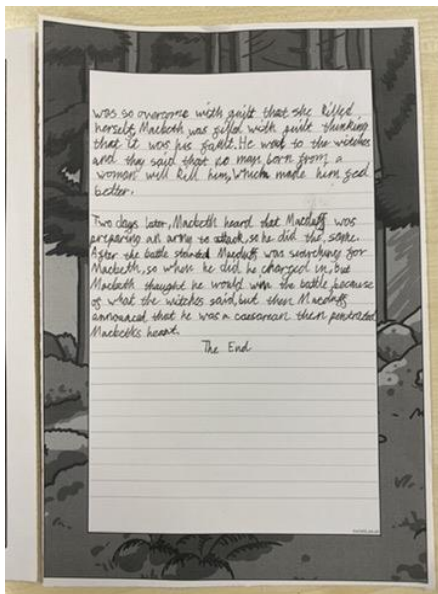 was so overcome with guilt that she killed
herself, Macbeth was filled with guilt thinking
that it was his fault. He went to the witches
and they said that no man born from a
woman will kill him, which made him feel
better.
Two days later, Macbeth heard that Macduff was
preparing an army to attack, so he did the same.
After the battle started Macduff was searching for
Macbeth, so when he did he charged in, but
Macbeth thought he would win the battle because
of what the witches said, but then Macduff
announced that he was a caesarean then penetrated
Macbeths heart.
The End